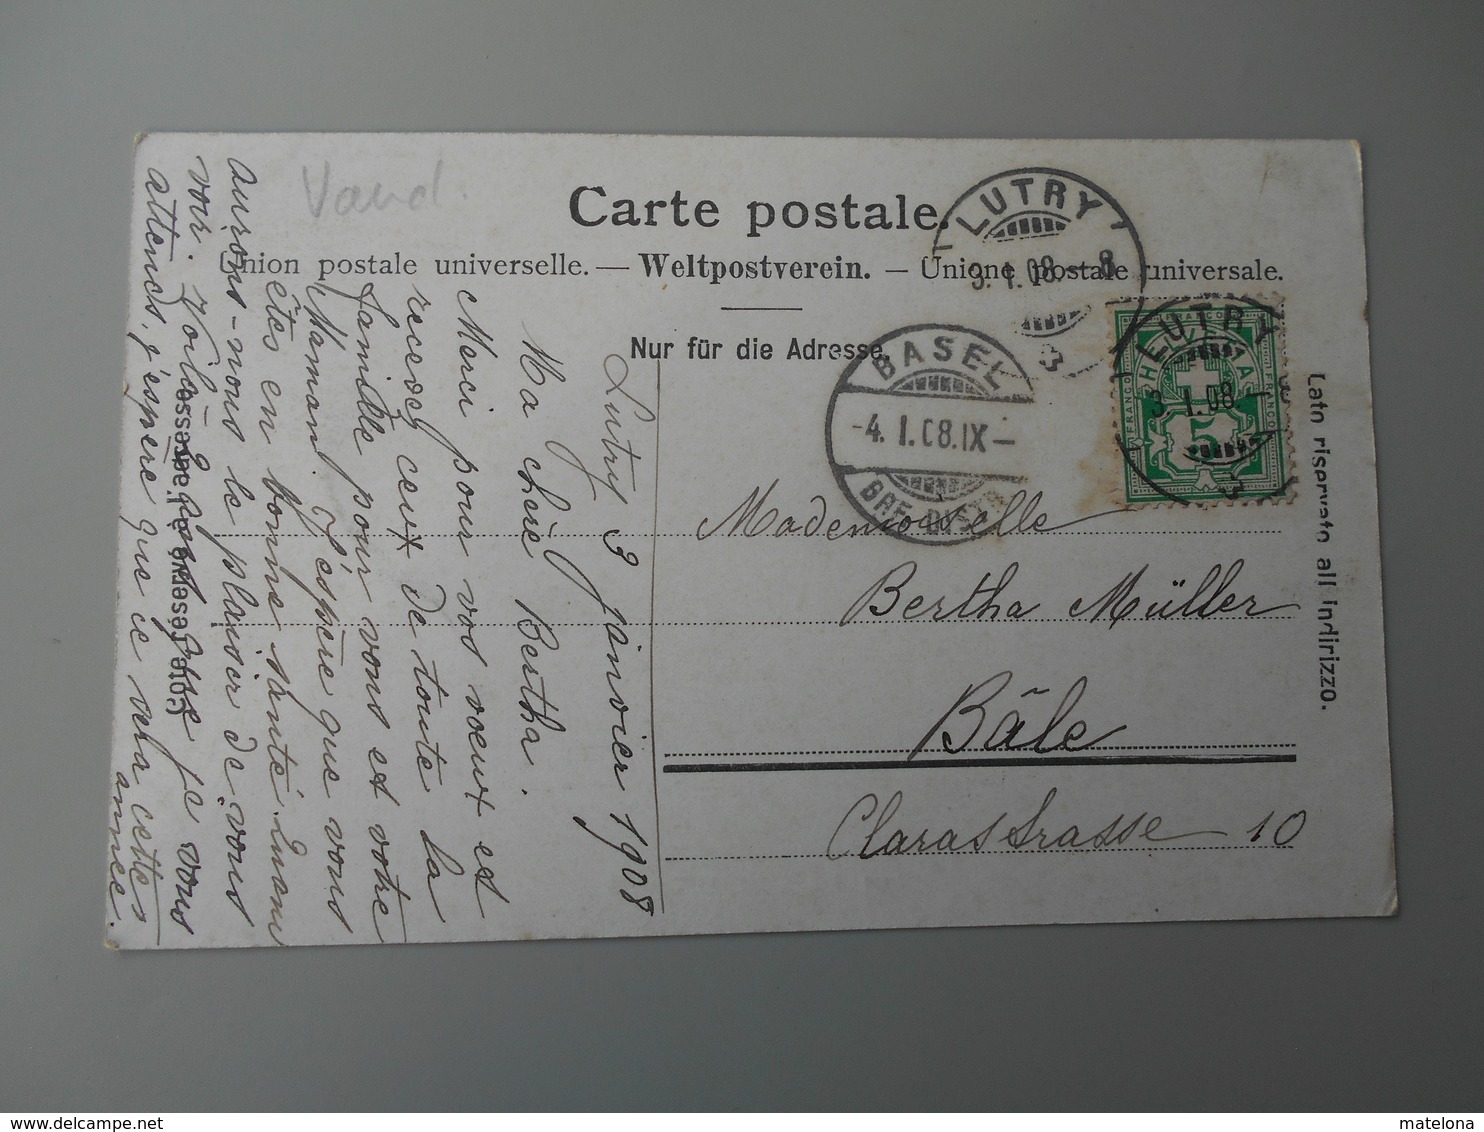 Vaud.
Carte postale.
Union postale universelle. — Weltpostverein. — Unione postale universale.
Nur für die Adresse.
Côté réservé à l'adresse
Lato riservato all indirizzo.
LUTRY
3.I.08.—8
BASEL
-4.I.08.IX—
BRF. DISTR
HELVETIA
FRANCO
5
LUTRY
3.I.08.—8
Mademoiselle
Bertha Müller
Bâle
Clarastrasse 10
Lutry 3 janvier 1908
Ma chère Bertha.
Merci pour vos voeux et
recevez ceux de toute la
famille pour vous et votre
Maman. J'espère que vous
êtes en bonne santé. Quand
aurons-nous le plaisir de vous
voir. Voilà que je vous
attends, j'espère que ce sera cette
année.
www.delcampe.net
matelona